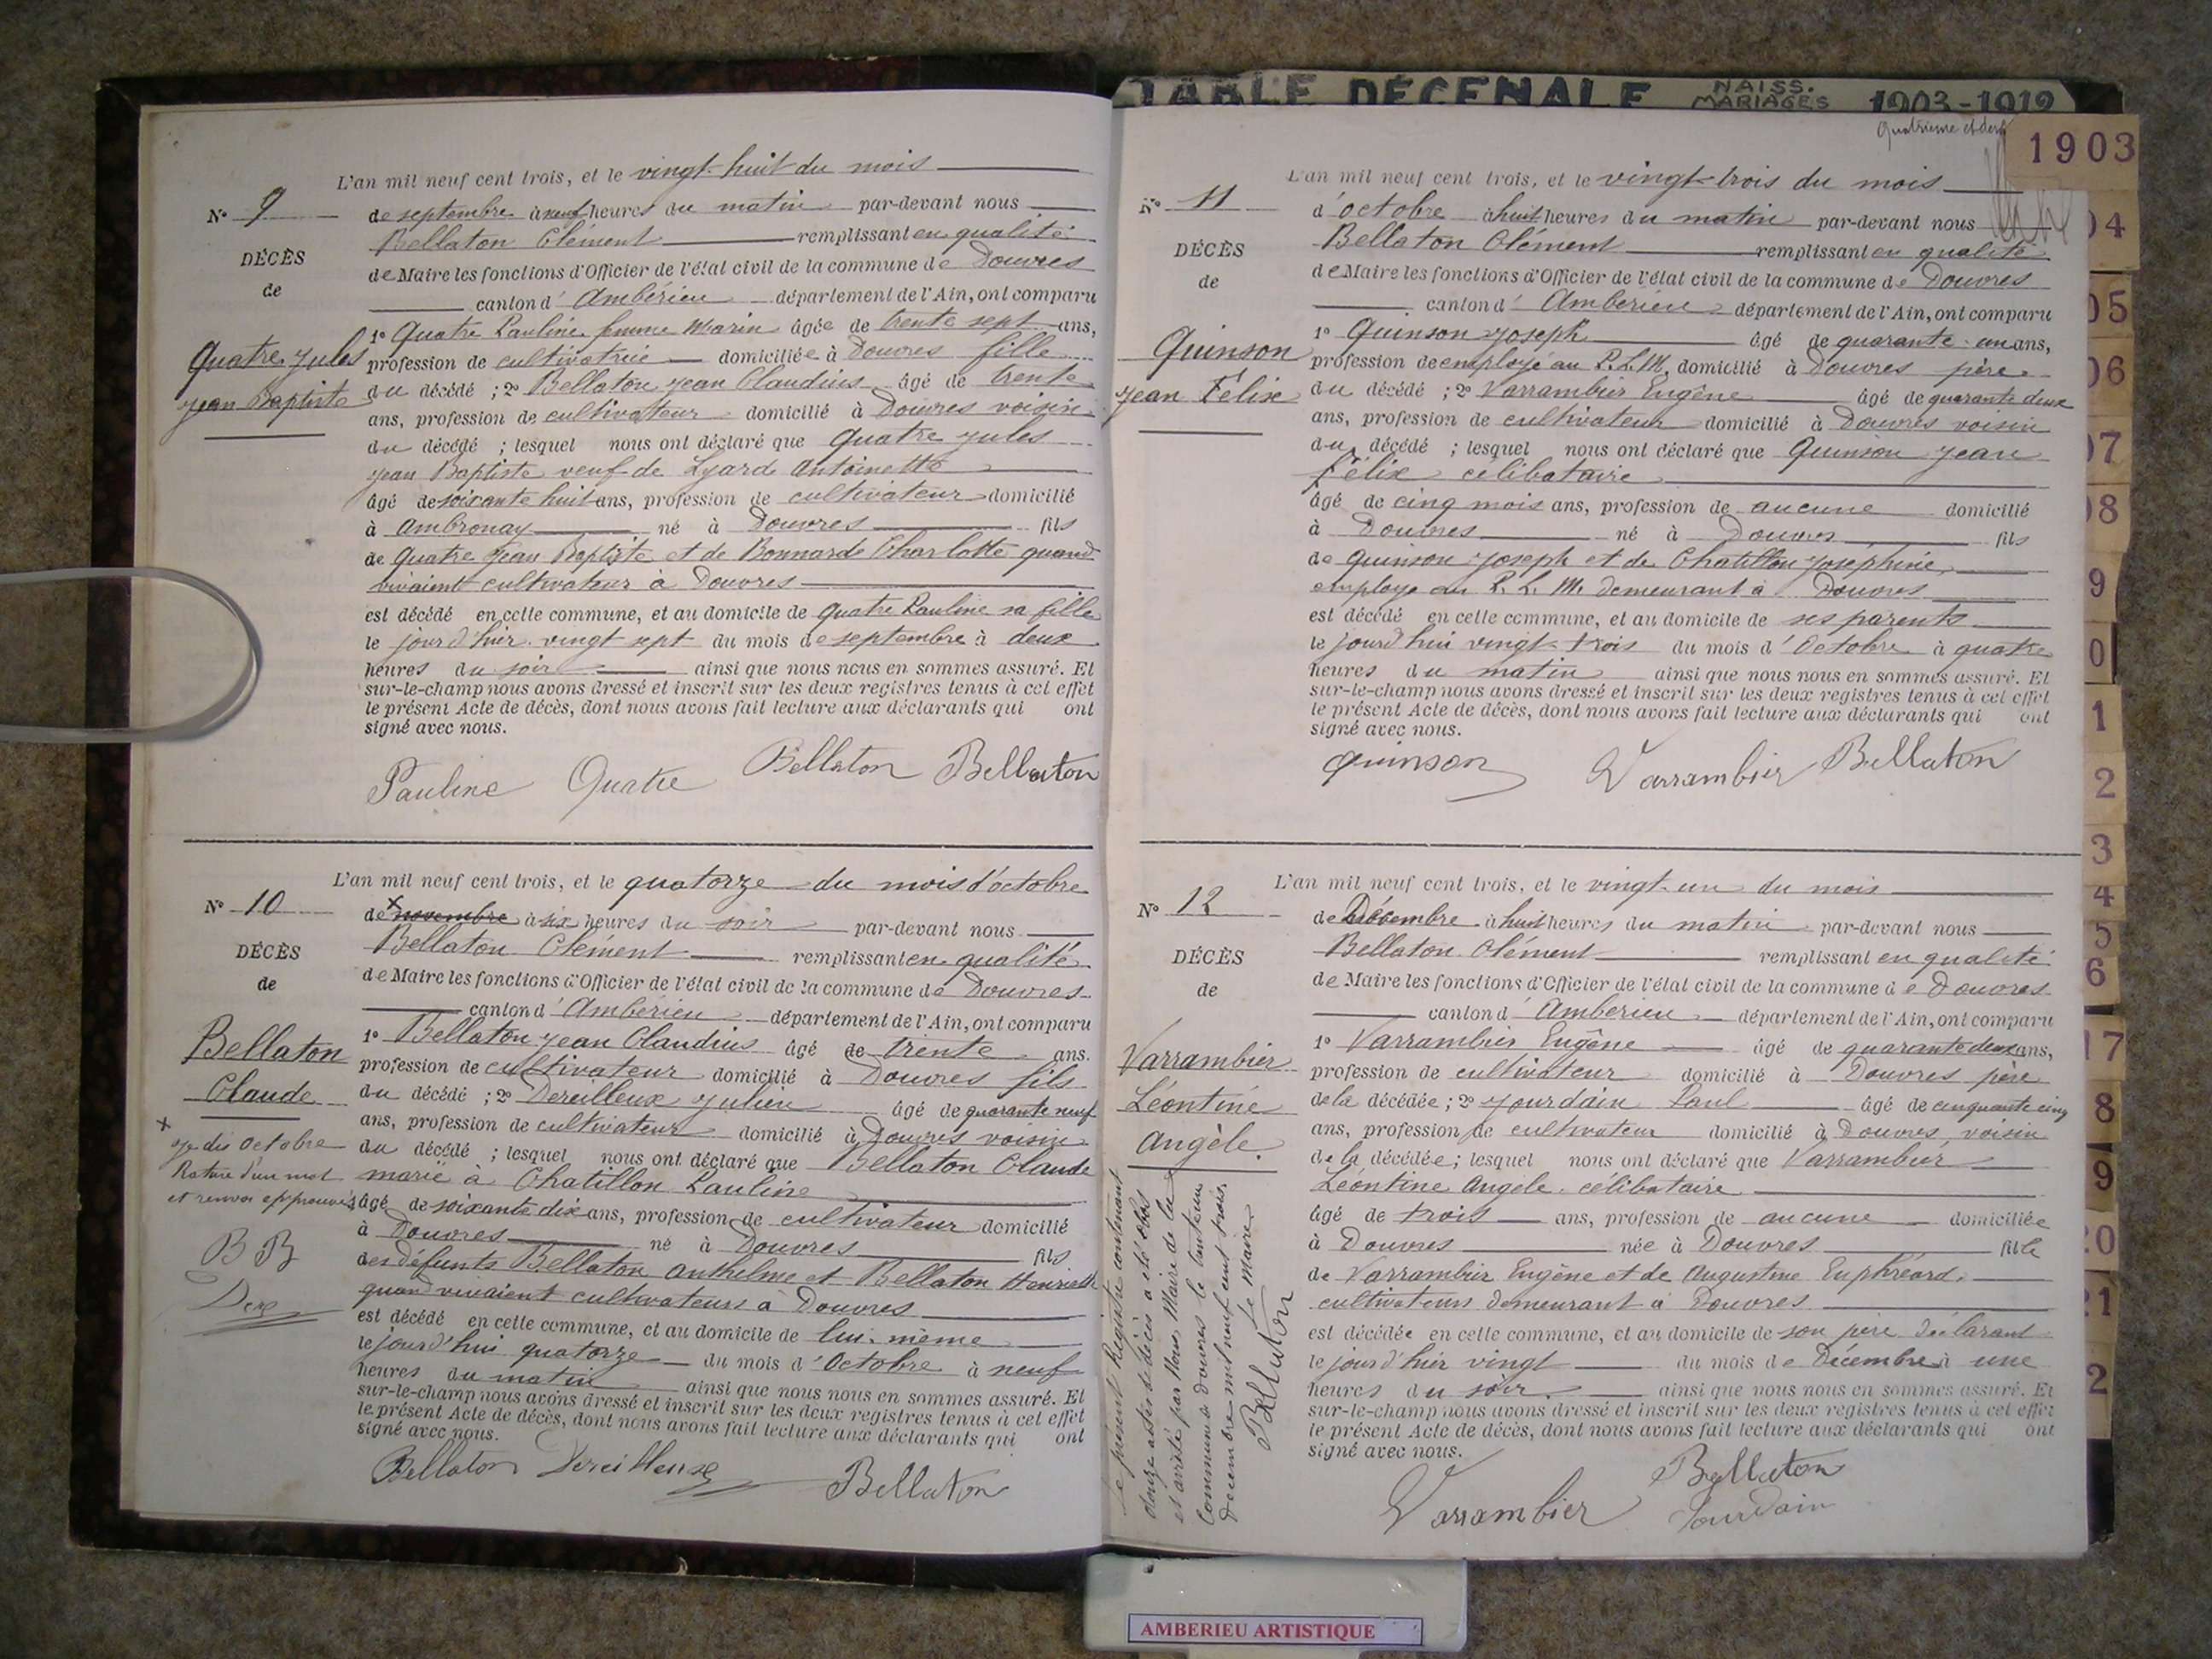 L'an mil neuf cent trois, et le vingt-huit du mois
N° 9
de septembre à neuf heures du matin par-devant nous
Bellaton Clément remplissant en qualité
DÉCÈS
de Maire les fonctions d'Officier de l'état civil de la commune de Douvres
de
canton d'Ambérieu département de l'Ain, ont comparu
1° Quatre Pauline femme Marin âgée de trente sept ans,
Quatre Jules
profession de cultivatrice domiciliée à Douvres fille
Jean Baptiste
du décédé ; 2° Bellaton Jean Claudius âgé de trente
ans, profession de cultivateur domicilié à Douvres voisin
du décédé ; lesquel nous ont déclaré que Quatre Jules
Jean Baptiste veuf de Lyard Antoinette
âgé de soixante huit ans, profession de cultivateur domicilié
à Ambronay né à Douvres fils
de Quatre Jean Baptiste et de Bonnarde Charlotte quand
vivaient cultivateur à Douvres
est décédé en cette commune, et au domicile de Quatre Pauline sa fille
le jour d'hier vingt sept du mois de septembre à deux
heures du soir ainsi que nous nous en sommes assuré. Et
sur-le-champ nous avons dressé et inscrit sur les deux registres tenus à cet effet
le présent Acte de décès, dont nous avons fait lecture aux déclarants qui ont
signé avec nous.
Pauline Quatre Bellaton Bellaton
L'an mil neuf cent trois, et le quatorze du mois d'octobre
N° 10
de novembre à six heures du soir par-devant nous
Bellaton Clément remplissant en qualité
DÉCÈS
de Maire les fonctions d'Officier de l'état civil de la commune de Douvres
de
canton d'Ambérieu département de l'Ain, ont comparu
Bellaton
1° Bellaton Jean Claudius âgé de trente ans.
profession de cultivateur domicilié à Douvres fils
Claude
du décédé ; 2° Dereilleux Julien âgé de quarante neuf
ans, profession de cultivateur domicilié à Douvres voisin
x
Je dis Octobre
Rature d'un mot
et renvoi approuvés
B B
Der
du décédé ; lesquel nous ont déclaré que Bellaton Claude
marié à Chatillon Pauline
âgé de soixante dix ans, profession de cultivateur domicilié
à Douvres né à Douvres fils
des défunts Bellaton Anthelme et Bellaton Henriette
quand vivaient cultivateurs à Douvres
est décédé en cette commune, et au domicile de lui-même
le jourd'hui quatorze du mois d'Octobre à neuf
heures du matin ainsi que nous nous en sommes assuré. Et
sur-le-champ nous avons dressé et inscrit sur les deux registres tenus à cet effet
le présent Acte de décès, dont nous avons fait lecture aux déclarants qui ont
signé avec nous.
Bellaton Dereilleux Bellaton
TABLE DÉCENALE NAISS. MARIAGES 1903-1912
Quatrième et der
1903
L'an mil neuf cent trois, et le vingt-trois du mois
N° 11
d'octobre à huit heures du matin par-devant nous
Bellaton Clément remplissant en qualité
DÉCÈS
de Maire les fonctions d'Officier de l'état civil de la commune de Douvres
de
canton d'Ambérieu département de l'Ain, ont comparu
Quinson
1° Quinson Joseph âgé de quarante un ans,
profession de employé au P.L.M. domicilié à Douvres père
Jean Félix
du décédé ; 2° Varrambier Eugène âgé de quarante deux
ans, profession de cultivateur domicilié à Douvres voisin
du décédé ; lesquel nous ont déclaré que Quinson Jean
Félix célibataire
âgé de cinq mois ans, profession de aucune domicilié
à Douvres né à Douvres fils
de Quinson Joseph et de Chatillon Joséphine,
employé au P. L. M. demeurant à Douvres
est décédé en cette commune, et au domicile de ses parents
le jourd'hui vingt trois du mois d'Octobre à quatre
heures du matin ainsi que nous nous en sommes assuré. Et
sur-le-champ nous avons dressé et inscrit sur les deux registres tenus à cet effet
le présent Acte de décès, dont nous avons fait lecture aux déclarants qui ont
signé avec nous.
Quinson Varrambier Bellaton
L'an mil neuf cent trois, et le vingt-un du mois
N° 12
de Décembre à huit heures du matin par-devant nous
Bellaton Clément remplissant en qualité
DÉCÈS
de Maire les fonctions d'Officier de l'état civil de la commune de Douvres
de
canton d'Ambérieu département de l'Ain, ont comparu
Varrambier
1° Varrambier Eugène âgé de quarante deux ans,
profession de cultivateur domicilié à Douvres père
Léontine
de la décédée ; 2° Jourdain Paul âgé de cinquante cinq
Angèle.
ans, profession de cultivateur domicilié à Douvres, voisin
de la décédée ; lesquel nous ont déclaré que Varrambier
Léontine Angèle célibataire
âgé de trois ans, profession de aucune domiciliée
à Douvres née à Douvres fille
de Varrambier Eugène et de Augustine Euphréard,
cultivateurs demeurant à Douvres
est décédée en cette commune, et au domicile de son père déclarant
le jour d'hier vingt du mois de Décembre à une
heures du soir. ainsi que nous nous en sommes assuré. Et
sur-le-champ nous avons dressé et inscrit sur les deux registres tenus à cet effet
le présent Acte de décès, dont nous avons fait lecture aux déclarants qui ont
signé avec nous.
Varrambier Bellaton
Jourdain
Le présent Registre contenant
douze actes de décès a été clos
et arrêté par Nous, Maire de la
Commune de Douvres le trente un
Décembre mil neuf cent trois.
Le Maire
Bellaton
04
05
06
07
08
9
0
1
2
3
4
5
6
17
8
9
20
21
2
AMBERIEU ARTISTIQUE